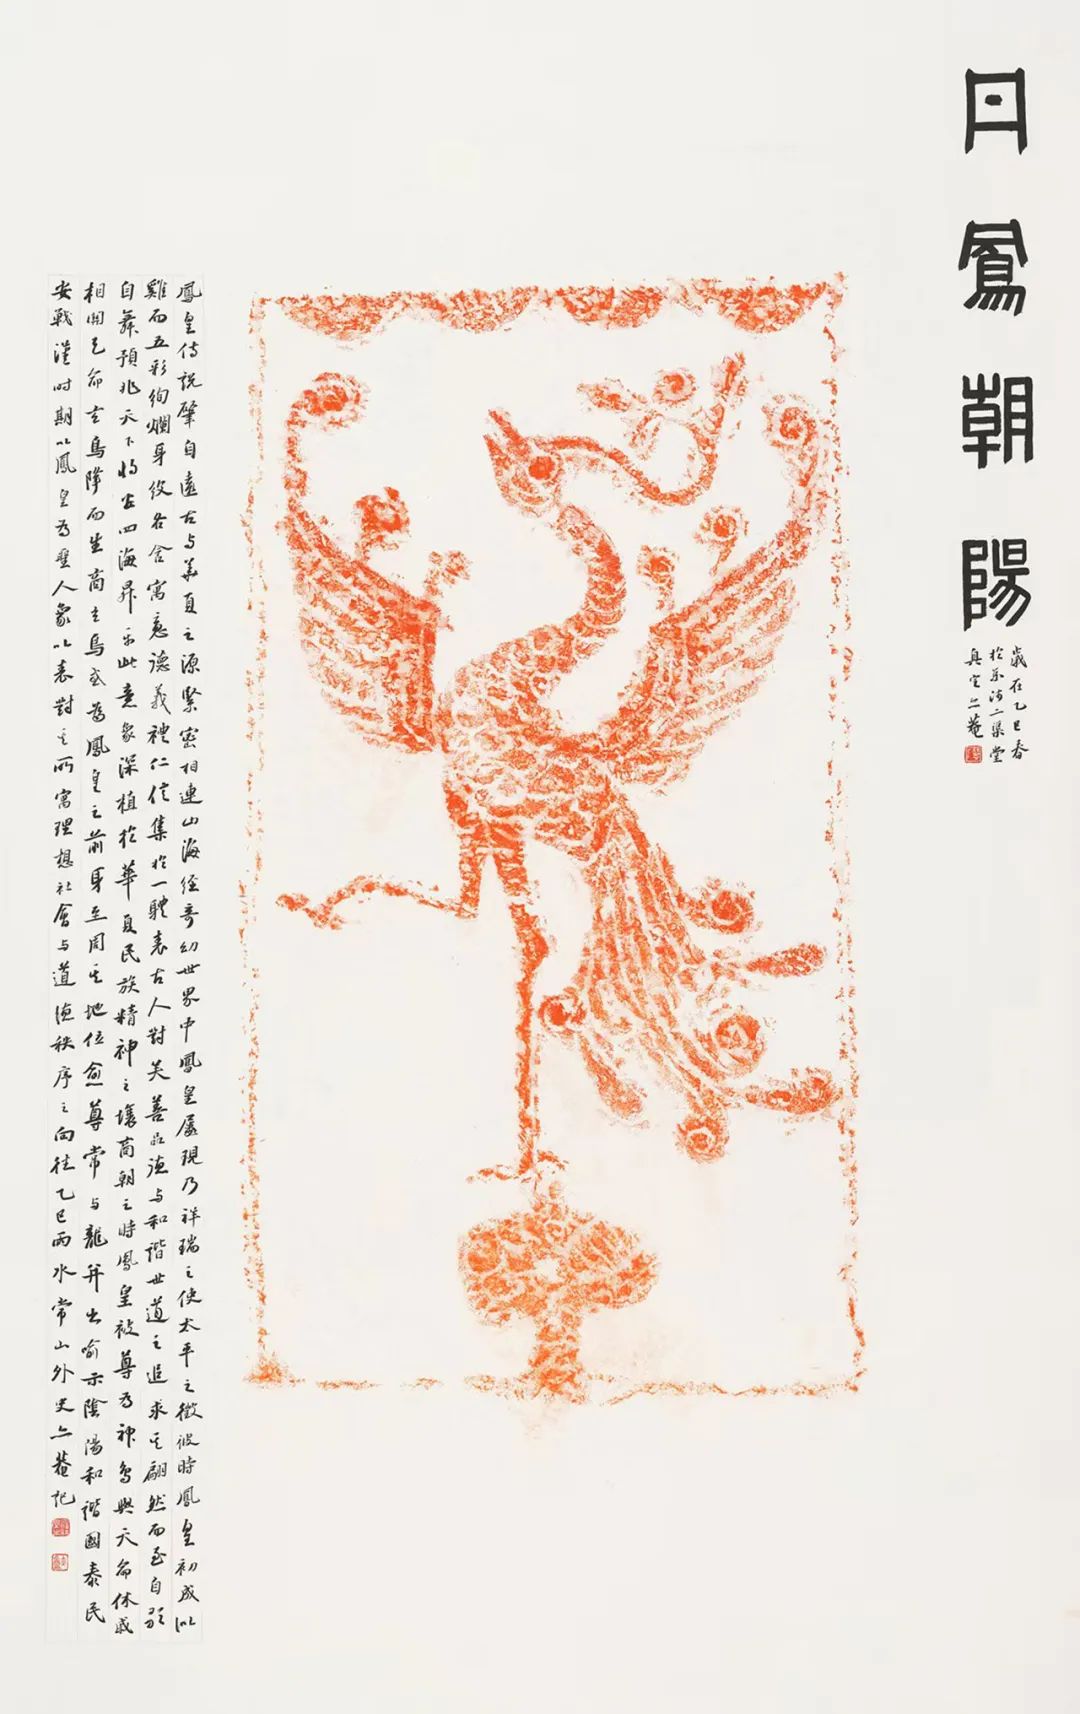 丹鳳朝陽
歲在乙巳春
於乐海二集堂
真定亦菴
鳳皇傳説肇自遠古与華夏之源緊密相連山海經奇幻世界中鳳皇屢現乃祥瑞之使太平之徵彼時鳳皇初成似
雞而五彩絢爛身紋各含寓意德義禮仁信集於一體表古人對美善品德与和諧世道之追求其翩然而至自歌
自舞預兆天下將安四海昇平此意象深植於華夏民族精神之壤商朝之時鳳皇被尊為神鳥與天命休戚
相関天命玄鳥降而生商玄鳥或為鳳皇之前身至周其地位愈尊常与龍并出喻示陰陽和諧國泰民
安戰漢时期以鳳皇為聖人象以表對其所寓理想社會与道德秩序之向往乙巳雨水常山外史亦菴記